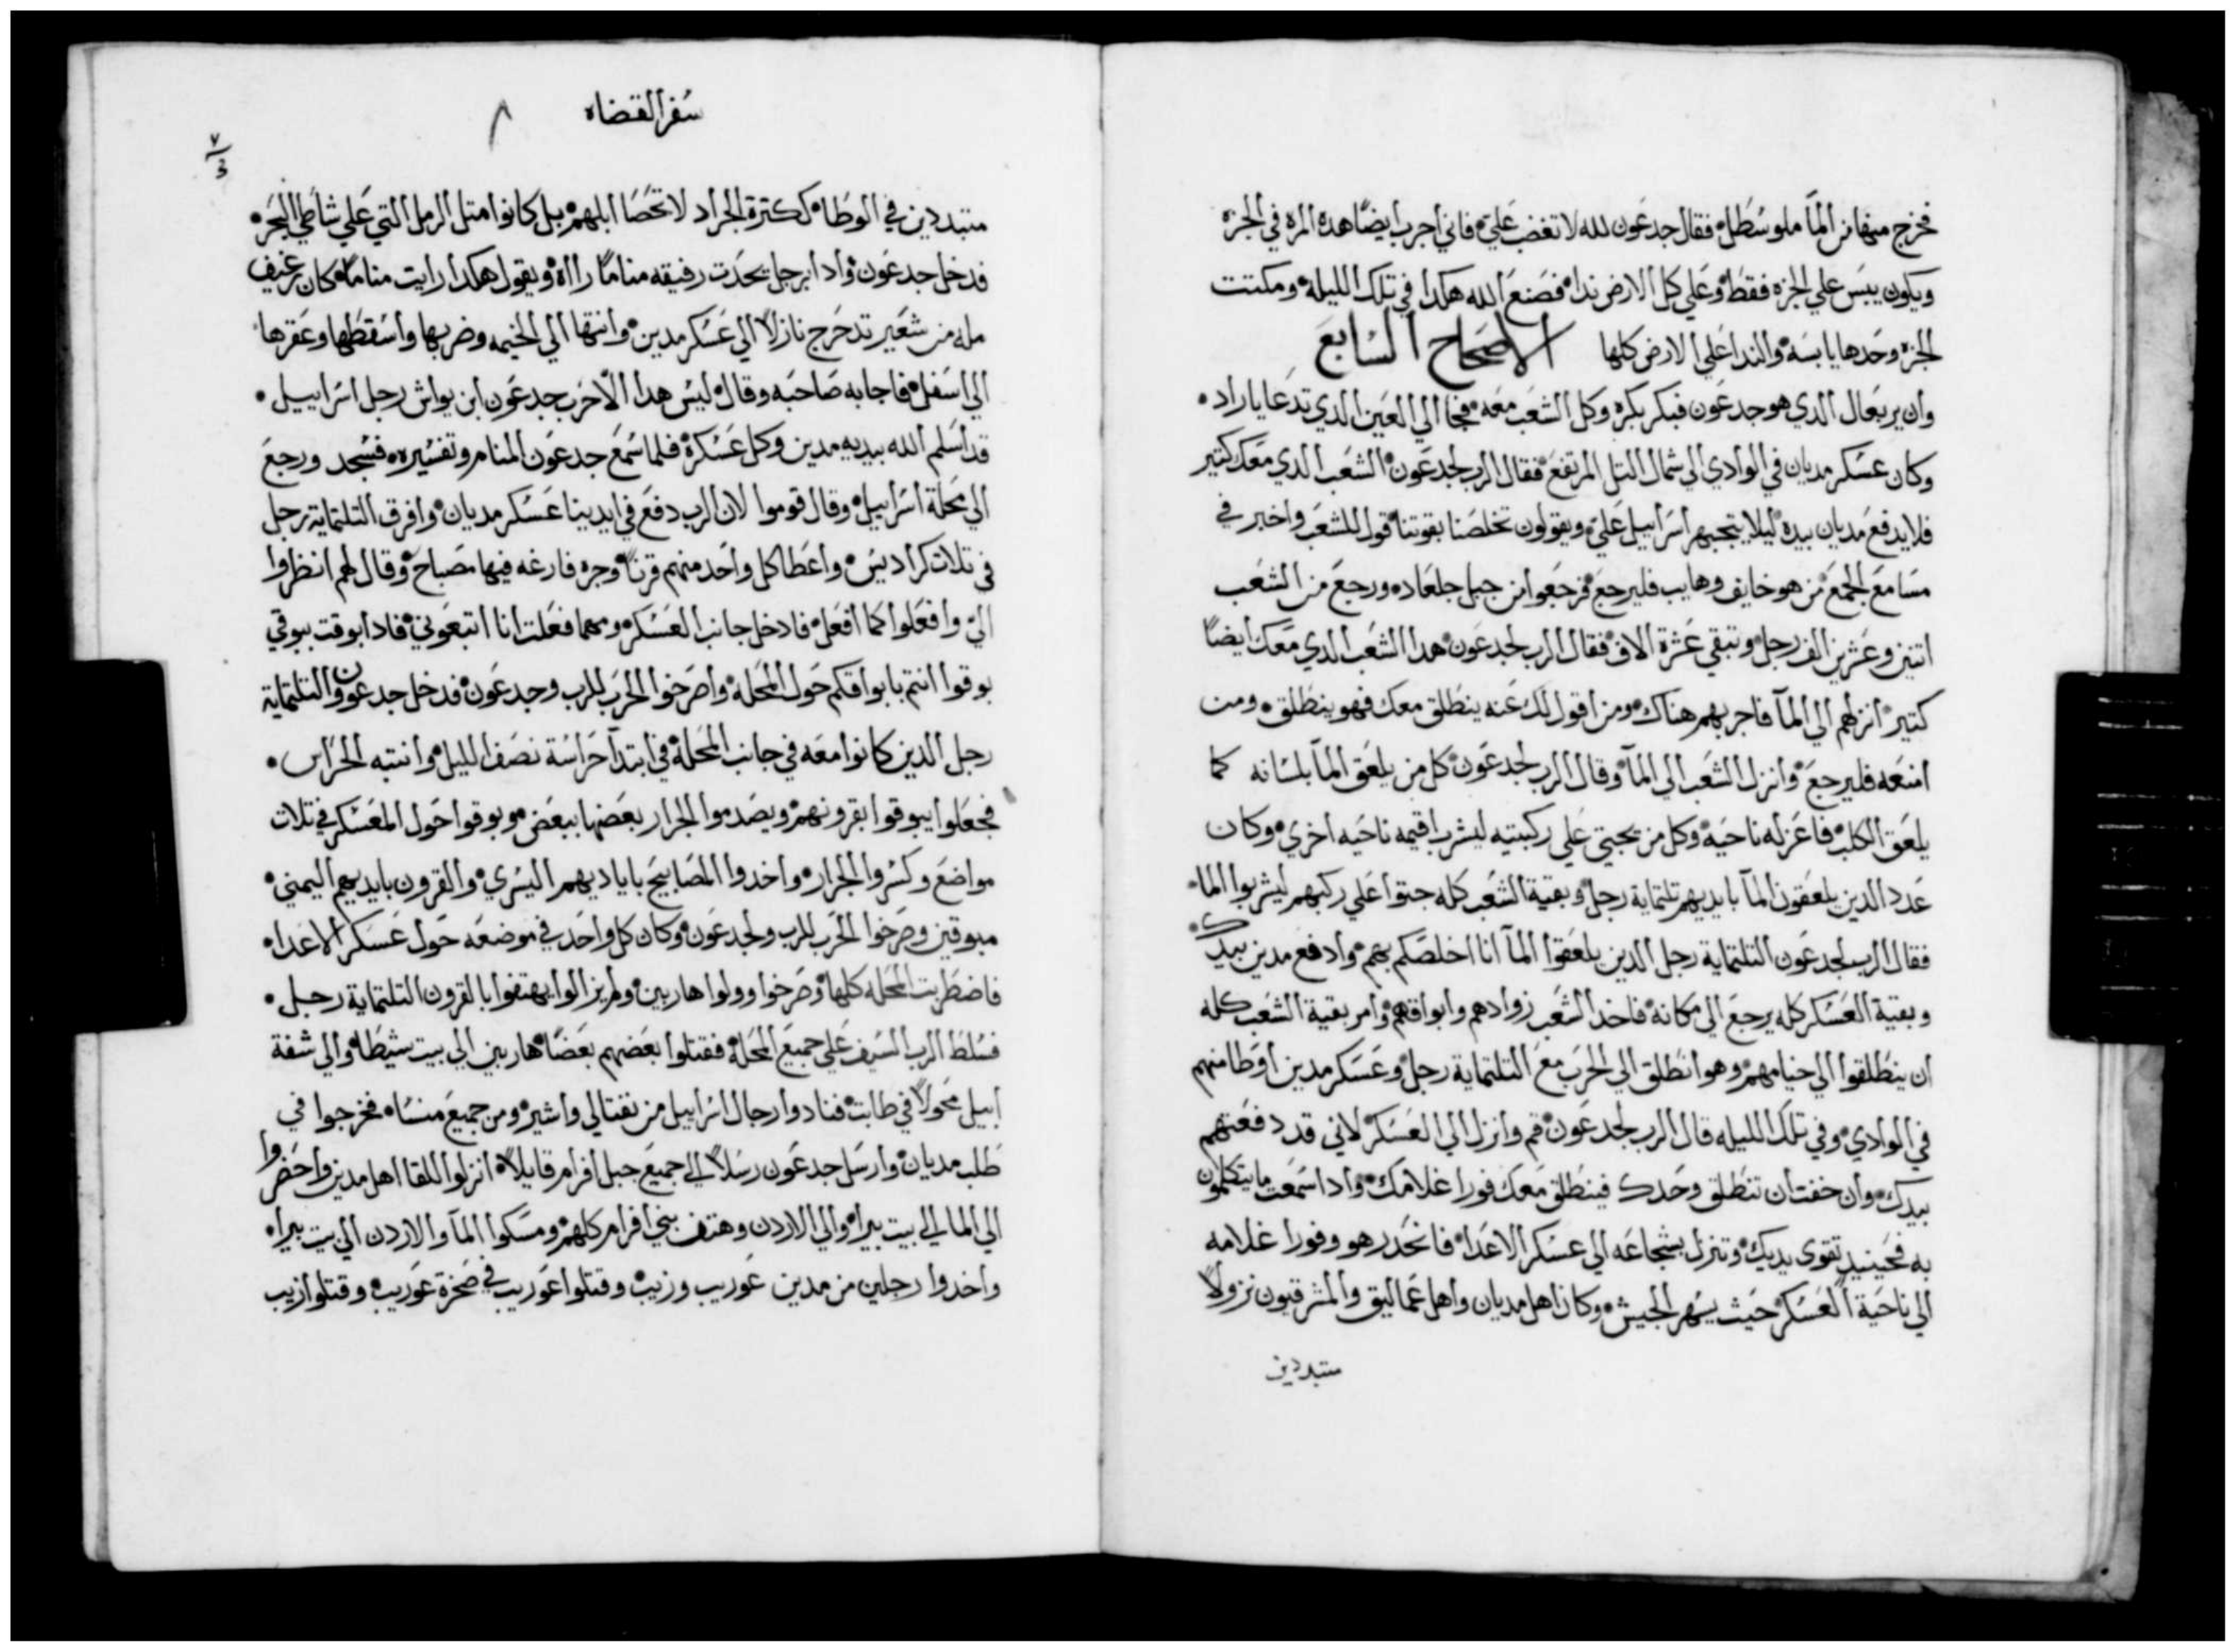 فخرج منها من المآ ملو سُطَل فقال جدعَون لله لا تغضب عَليّ فاني أجرب ايضًا هده المره في الجزة
ويكون يبسَ علي الجزه فقطَ وعَلي كل الارض ندا فصَنعَ الله هكدا في تلك الليلة ومكتت
الجزه وحَدها يابسَة والندا عَلي الارض كلها الاصحَاح السَابعَ
وان يربعَال الدي هو جدعَون فبكر بكره وكل الشعَب معَه فجا الي العَين الدي تدعَا ياراد
وكان عسَكر مديان في الوادي الي شمال التل المرتفعَ فقال الرب لجدعَون الشعَب الدي معَك كتير
فلا يدفعَ مديان بيده ليلا يتجبهر اسَراييل عَليّ ويقولون تخلصَنا بقوتنا قول للشعَب واخبر في
مسَامعَ الجمعَ من هو خايف وهايب فليرجعَ فرجعَوا من جبل جلعَاد ورجعَ من الشعَب
اتنين وعَشرين الف رجل وتبقي عَشرة الاف فقال الرب لجدعَون هدا الشعَب الدي معَك ايضًا
كتير انزلهم الي المآ فاجربهم هناك ومن اقول لك عَنه ينطَلق معك فهو ينطَلق ومن
امنعَه فليرجعَ وانزل الشعَب الي المآ وقال الرب لجدعَون كل من يلعَق المآ بلسَانه كما
يلعَق الكلب فاعَزله ناحَيه وكل من يجتي عَلي ركبتيه ليشرب اقيمه ناحَيه اخري وكان
عَدد الدين يلعَقون المآ بايديهم تلتماية رجل وبقية الشعَب كله جتوا عَلي ركبهم ليشربوا الما
فقال الرب لجدعَون التلتماية رجل الدين يلعَقوا المآ انا اخلصَكم بهم وادفعَ مدين بيدك
وبقية العَسَكر كله يرجعَ الي مكانه فاخد الشعَب زوادهم وابواقهم وامر بقية الشعَب كله
ان ينطَلقوا الي خيامهم وهو انطَلق الي الحَرب معَ التلتماية رجل وعَسَكر مدين اوطَا منهم
في الوادي وفي تلك الليله قال الرب لجدعَون قم وانزل الي العَسَكر لاني قد دفعَتهم
بيدك وان خفت ان تنطَلق وحَدك فينطَلق معَك فورا غلامك وادا سَمعَت ما يتكلمون
به فحَينيد تقوى يديك وتنزل بشجاعَه الي عسَكر الاعَدا فانحَدر هو وفورا غلامه
الي ناحَية العَسَكر حَيث يسَهر الجيش وكان اهل مديان واهل عَماليق والمشرقيون نزولاً
متبددين
سَفر القضاه
٨
٧
3
متبددين في الوطَا ككترة الجراد لا تحَصَا ابلهم بل كانوا متل الرمل التي عَلي شاطَي البحَر
فدخل جدعَون وادا برجل يحَدت رفيقه منامًا رااه ويقول هكدا رايت منامًا كان رغيف
مله من شعَير تدحَرج نازلاً الي عَسَكر مدين وانتها الي الخيمه وضربها واسَقطَها وعَقرها
الي اسَفل فاجابه صَاحَبه وقال ليسَ هدا الا حَرب جدعَون ابن يواش رجل اسَراييل
قد اسَلم الله بيديه مدين وكل عَسَكره فلما سَمعَ جدعَون المنام وتفسَيره فسَجد ورجعَ
الي محَلة اسَراييل وقال قوموا لان الرب دفعَ في ايدينا عَسَكر مديان وافرق التلتماية رجل
في تلات كراديسَ واعَطَا كل واحَد منهم قرنًا وجره فارغه فيها مصَباحَ وقال لهم انظروا
اليّ وافعَلوا كما افعَل فادخل جانب العَسَكر ومهما فعَلت انا اتبعَوني فادا بوقت ببوقي
بوقوا انتم بابواقكم حَول المحَله واصَرخوا الحَرب للرب وجدعَون فدخل جدعَون والتلتماية
رجل الدين كانوا معَه في جانب المحَلة في ابتدآ حَراسَة نصَف الليل وانتبه الحَراس
فجعَلوا يبوقوا بقرونهم ويصَدموا الجرار بعَضها ببعَض وبوقوا حَول المعَسَكر في تلات
مواضعَ وكسَروا الجرار واخدوا المصَابيحَ باياديهم اليسَري والقرون بايديهم اليمني
مبوقين وصَرخوا الحَرب للرب ولجدعَون وكان كل واحَد في موضعَه حَول عَسَكر الاعَدا
فاضطَربت المحَله كلها وصَرخوا وولوا هاربين ولم يزالوا يهتفوا بالقرون التلتماية رجل
فسَلطَ الرب السَيف عَلي جميعَ المحَلة فقتلوا بعَضهم بعَضًا هاربين الي بيت شيطَا والي شفة
ابيل محَولا في طابت فنادوا رجال اسَراييل من نفتالي واشير ومن جميعَ منسَا فخرجوا في
طَلب مديان وارسَل جدعَون رسَلاً الي جميعَ جبل افرام قايلاً انزلوا للقا اهل مدين واحَضروا
الي الما الي بيت بيرا والي الاردن وهتف بني افرام كلهم ومسَكوا المآ والاردن الي بيت بيرا
واخدوا رجلين من مدين عَوريب وزيب وقتلوا عَوريب في صَخرة عَوريب وقتلوا زيب